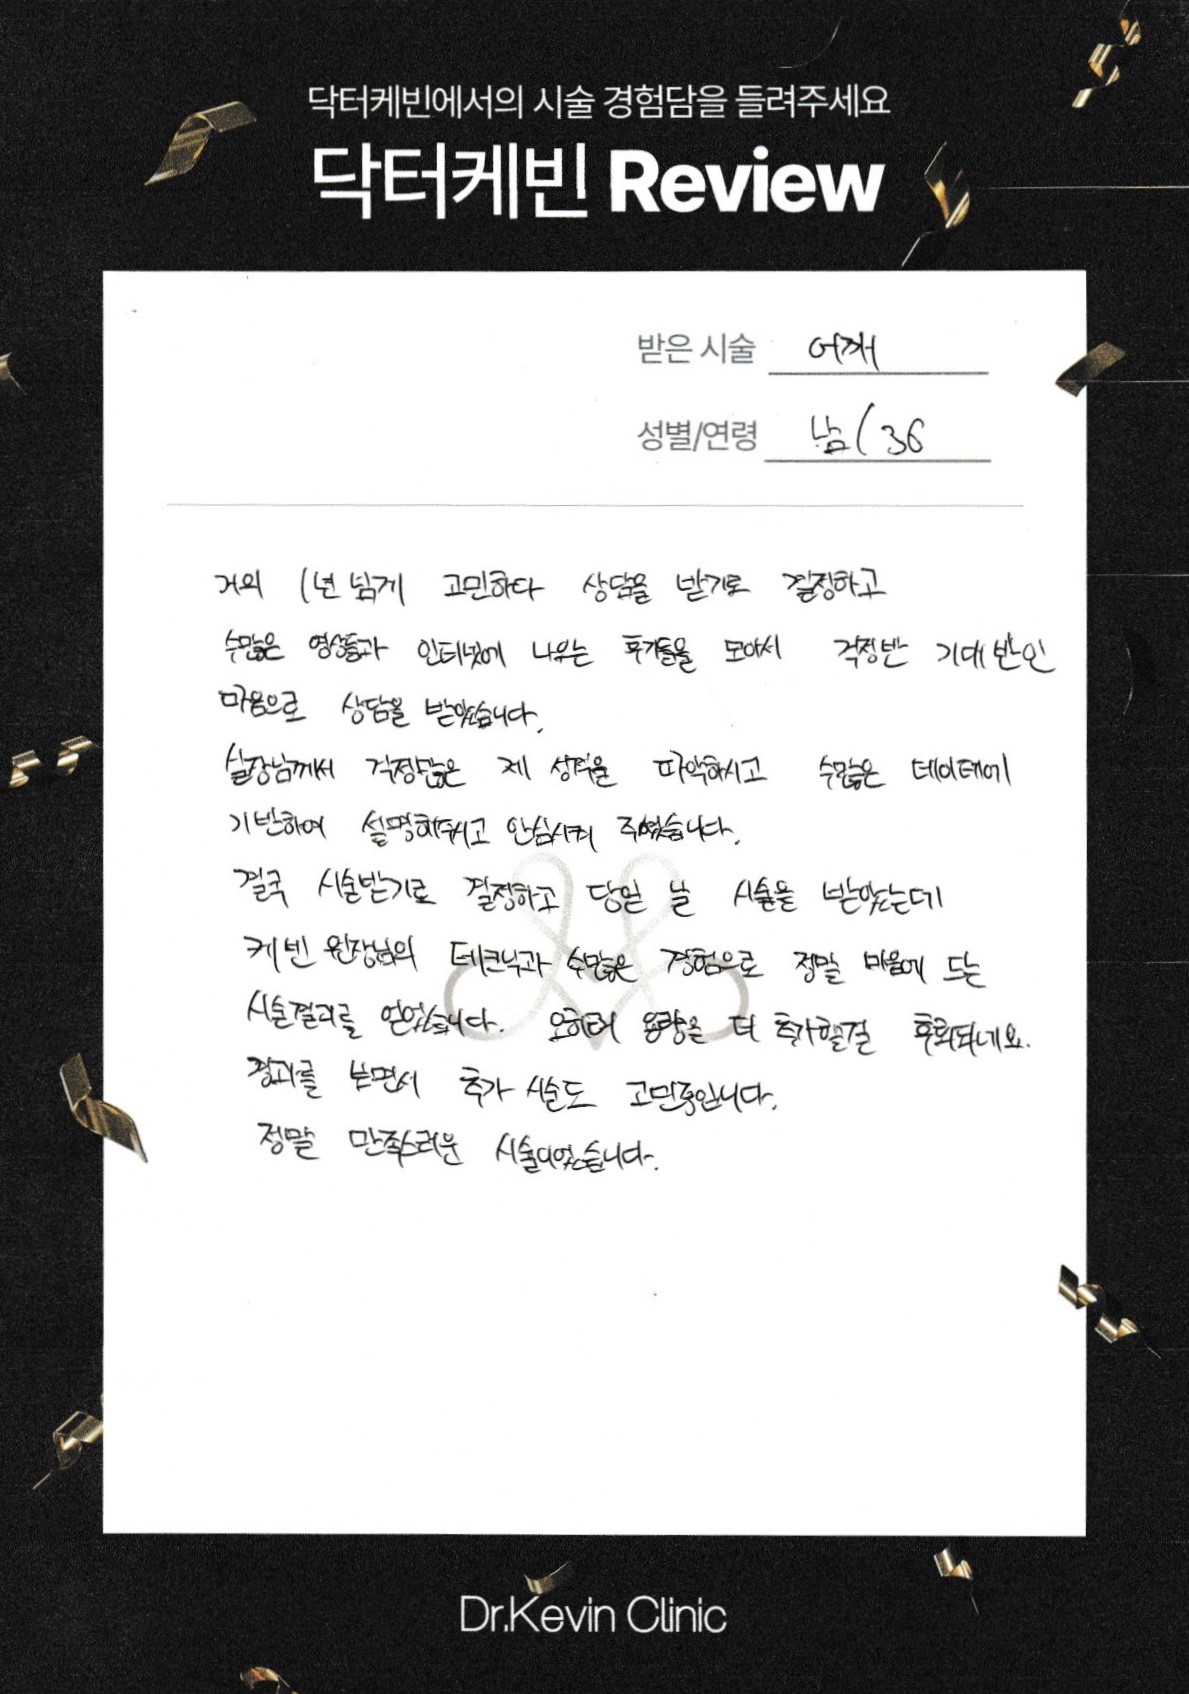 닥터케빈에서의 시술 경험담을 들려주세요
닥터케빈 Review
받은 시술 어깨
성별/연령 남/36
거의 1년 넘게 고민하다 상담을 받기로 결정하고
수많은 영상들과 인터넷에 나오는 후기들을 모아서 걱정반 기대반인
마음으로 상담을 받았습니다.
실장님께서 걱정많은 제 성격을 파악하시고 수많은 데이터에
기반하여 설명해주시고 안심시켜 주셨습니다.
결국 시술받기로 결정하고 당일 날 시술을 받았는데
케빈 원장님의 테크닉과 수많은 경험으로 정말 마음에 드는
시술결과를 얻었습니다. 오히려 용량을 더 추가할걸 후회되네요.
경과를 보면서 추가 시술도 고민중입니다.
정말 만족스러운 시술이었습니다.
Dr.Kevin Clinic